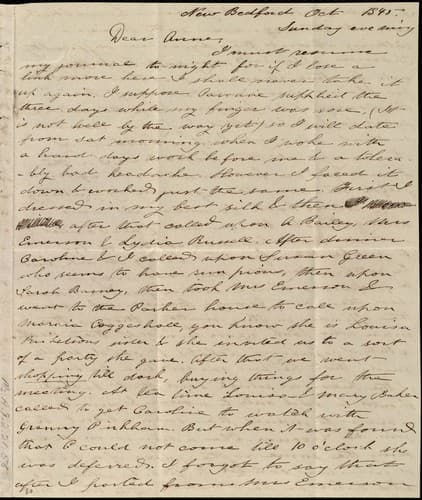 New Bedford Oct 1845
Sunday evening
Dear Anne,
I must resume
my journal to night for if I lose a
link more here I shall never take it
up again. I suppose Caroline supplied the
three days while my finger was sore, (It
is not well by the way yet) so I will date
from sat morning when I woke with
a hard days work before me & a tolera-
bly bad headache However I faced it
down & worked just the same. First I
dressed in my best silk & then
after that called upon A Bailey, Mrs
Emerson & Lydia Russell. After dinner
Caroline & I called upon Susan Green
who seems to have run pious, then upon
Sarah Burney, then took Mrs Emerson &
went to the Parker house to call upon
Maria Coggeshall, you know she is Louisa
sister & she invited us to a sort
of a party she gave. After that we went
shopping till dark buying things for the
meeting. At tea time Louisa & Mary Baker
called to get Caroline to watch with
Granny Pinkham. But when it was found
that C could not come till 10 o'clock she
was deferred. I forgot to say that
after I parted from Mrs Emerson